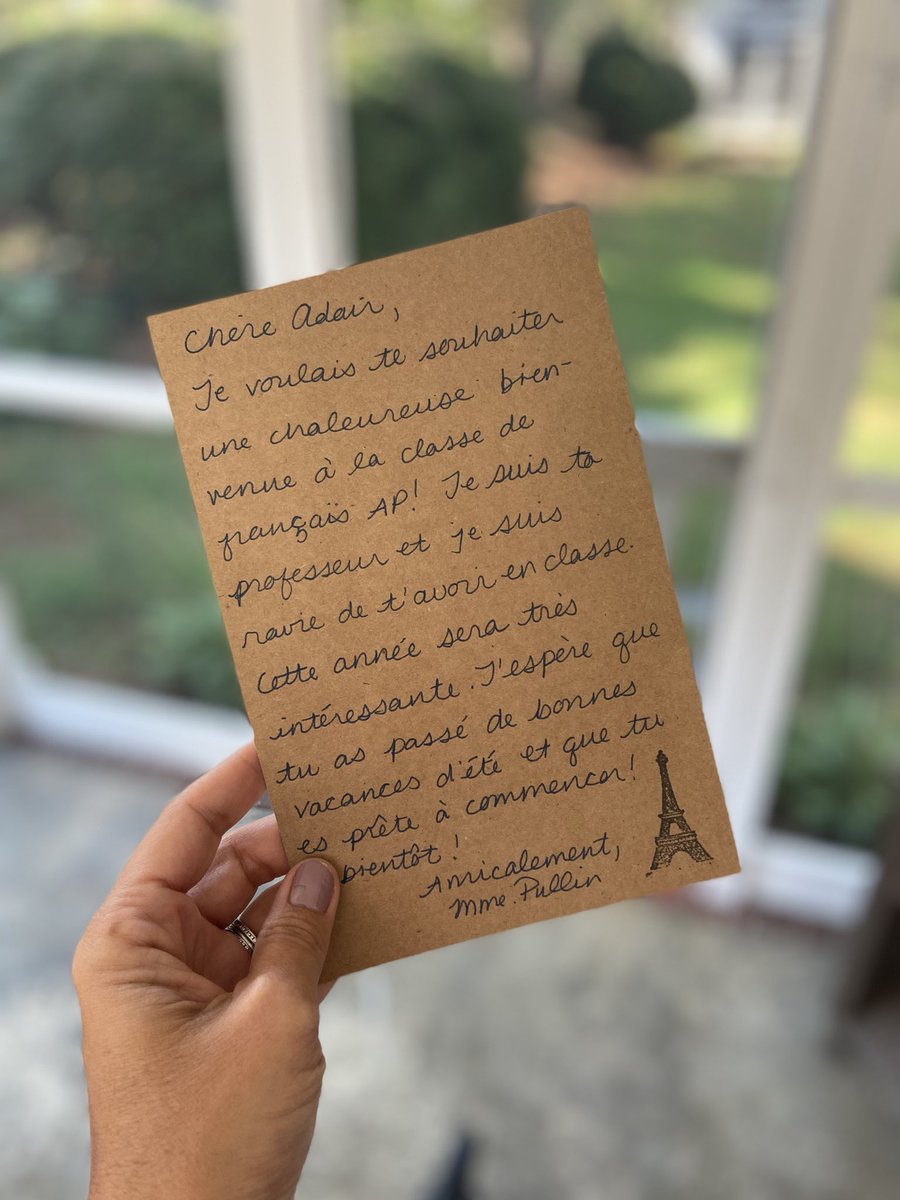 Chère Adair,
Je voulais te souhaiter
une chaleureuse bien-
venue à la classe de
français AP! Je suis ta
professeur et je suis
ravie de t'avoir en classe.
Cette année sera très
intéressante. J'espère que
tu as passé de bonnes
vacances d'été et que tu
es prête à commencer!
bientôt!
Amicalement,
Mme. Pullin